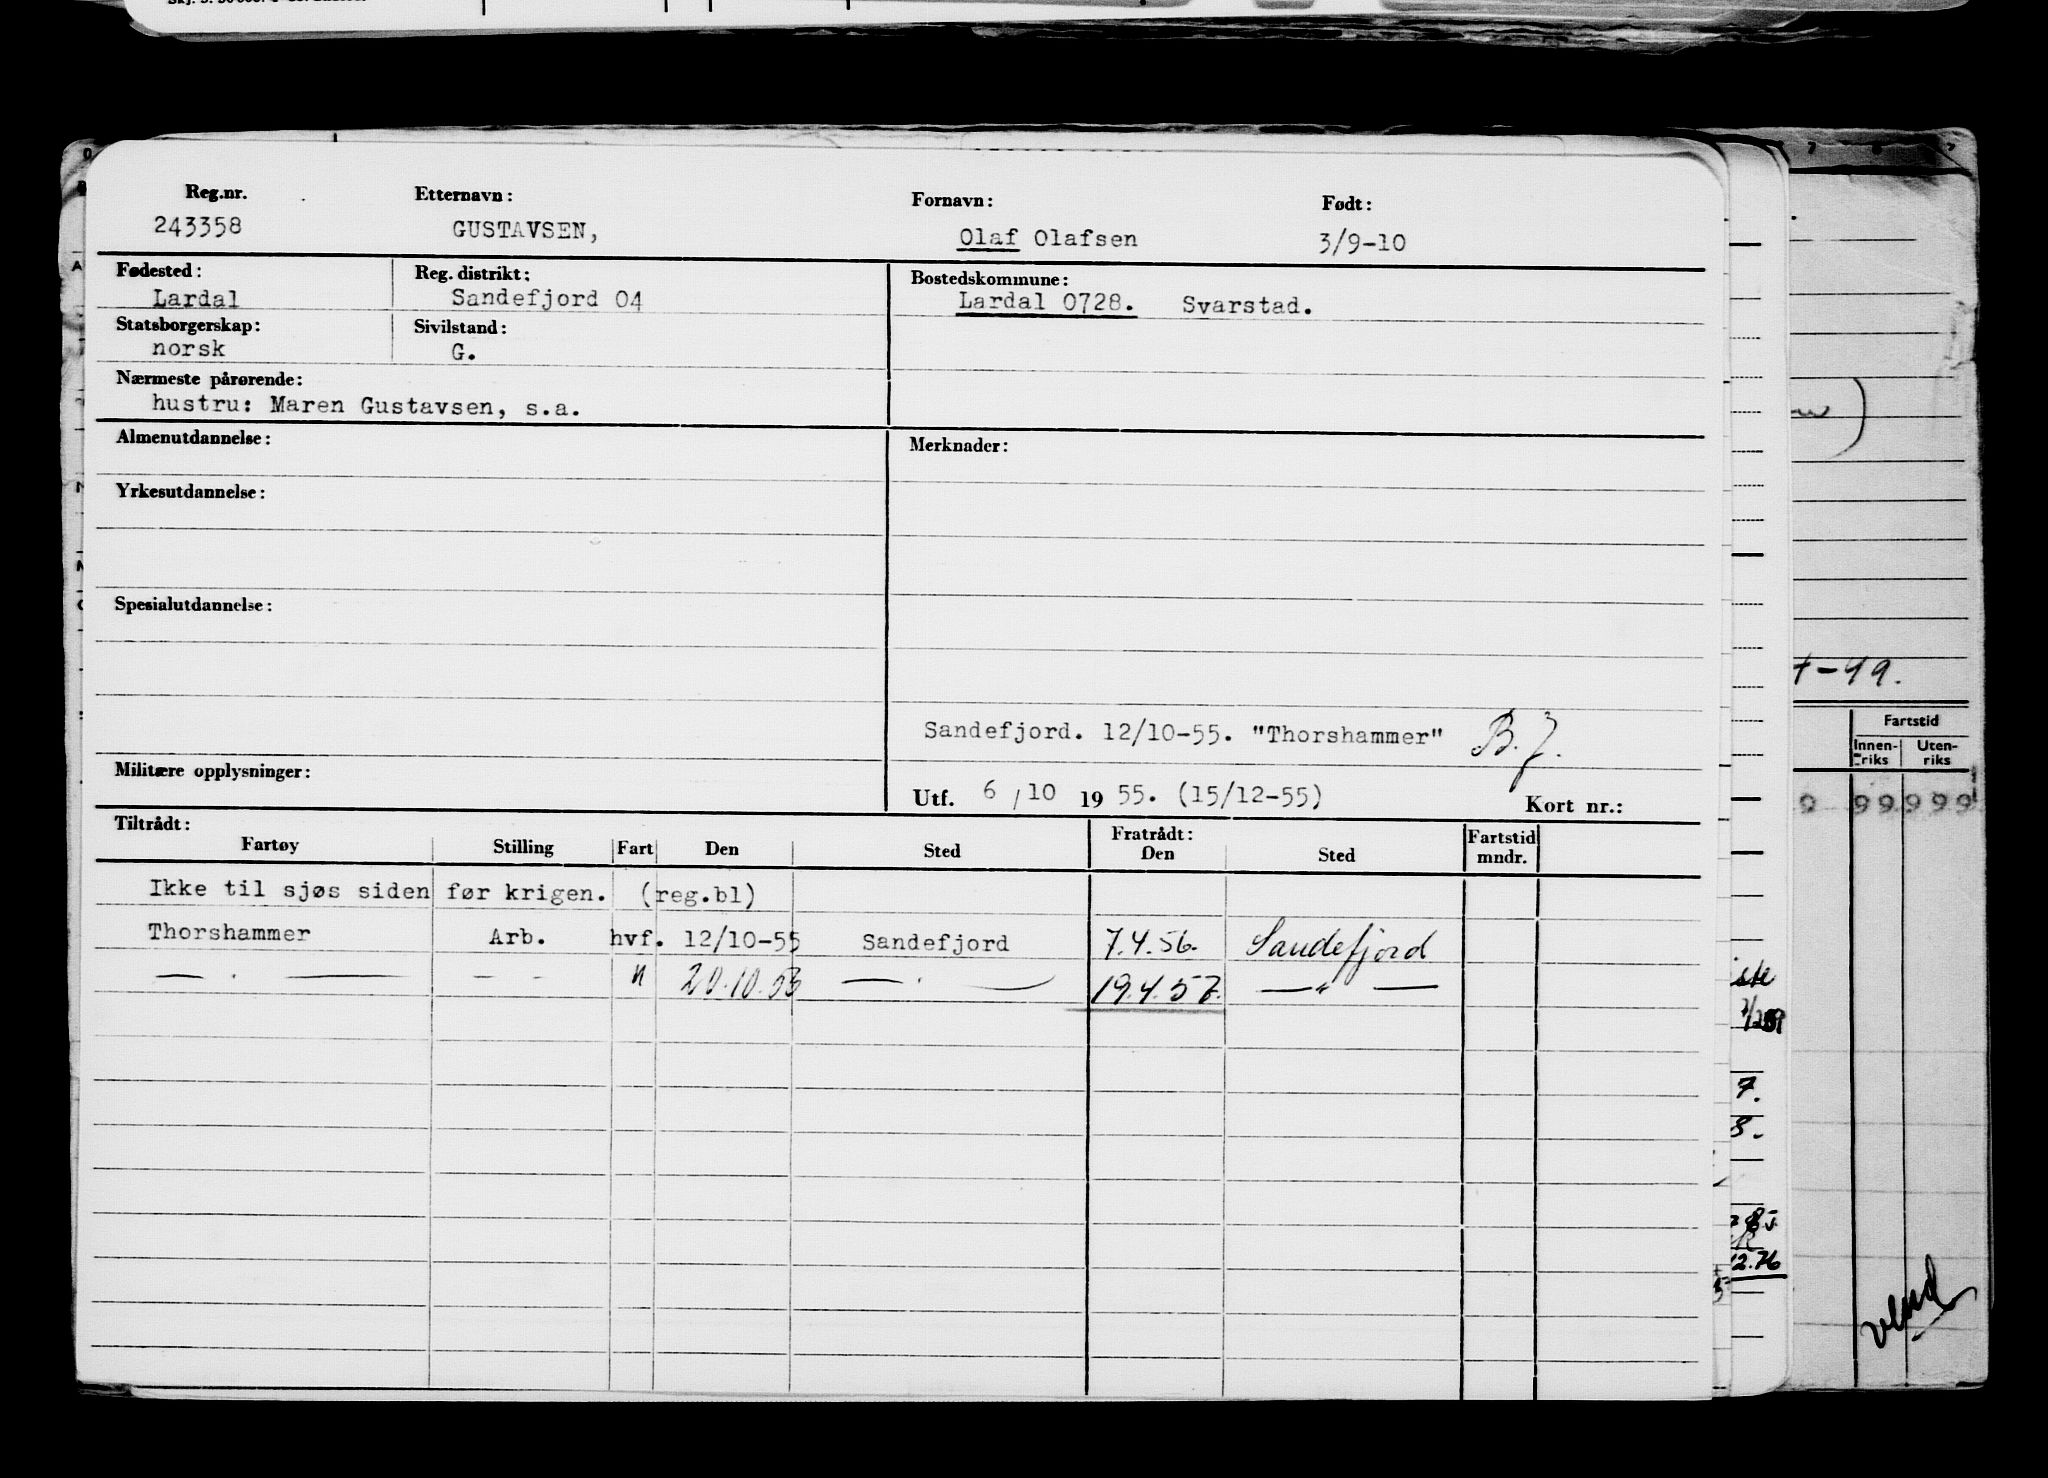 Reg.nr. Etternavn: Fornavn: Født:
243358 GUSTAVSEN, Olaf Olafsen 3/9-10
Fødested: Reg. distrikt: Bostedskommune:
Lardal Sandefjord 04 Lardal 0728. Svarstad.
Statsborgerskap: Sivilstand:
norsk G.
Nærmeste pårørende:
hustru: Maren Gustavsen, s.a.
Almenutdannelse: Merknader:
Yrkesutdannelse:
Spesialutdannelse:
Sandefjord. 12/10-55. "Thorshammer" B.J.
Militære opplysninger:
Utf. 6/10 1955. (15/12-55) Kort nr.:
Tiltrådt: Fratrådt: Fartstid
Fartøy Stilling Fart Den Sted Den Sted mndr.
Ikke til sjøs siden før krigen. (reg.bl)
Thorshammer Arb. hvf. 12/10-55 Sandefjord 7.4.56. Sandefjord
— . — — - " 20.10.5 — . — 19.4.57. — " —
-49.
Fartstid
Innen- Uten-
riks riks
9 99999
7.
8.
12.76
vend